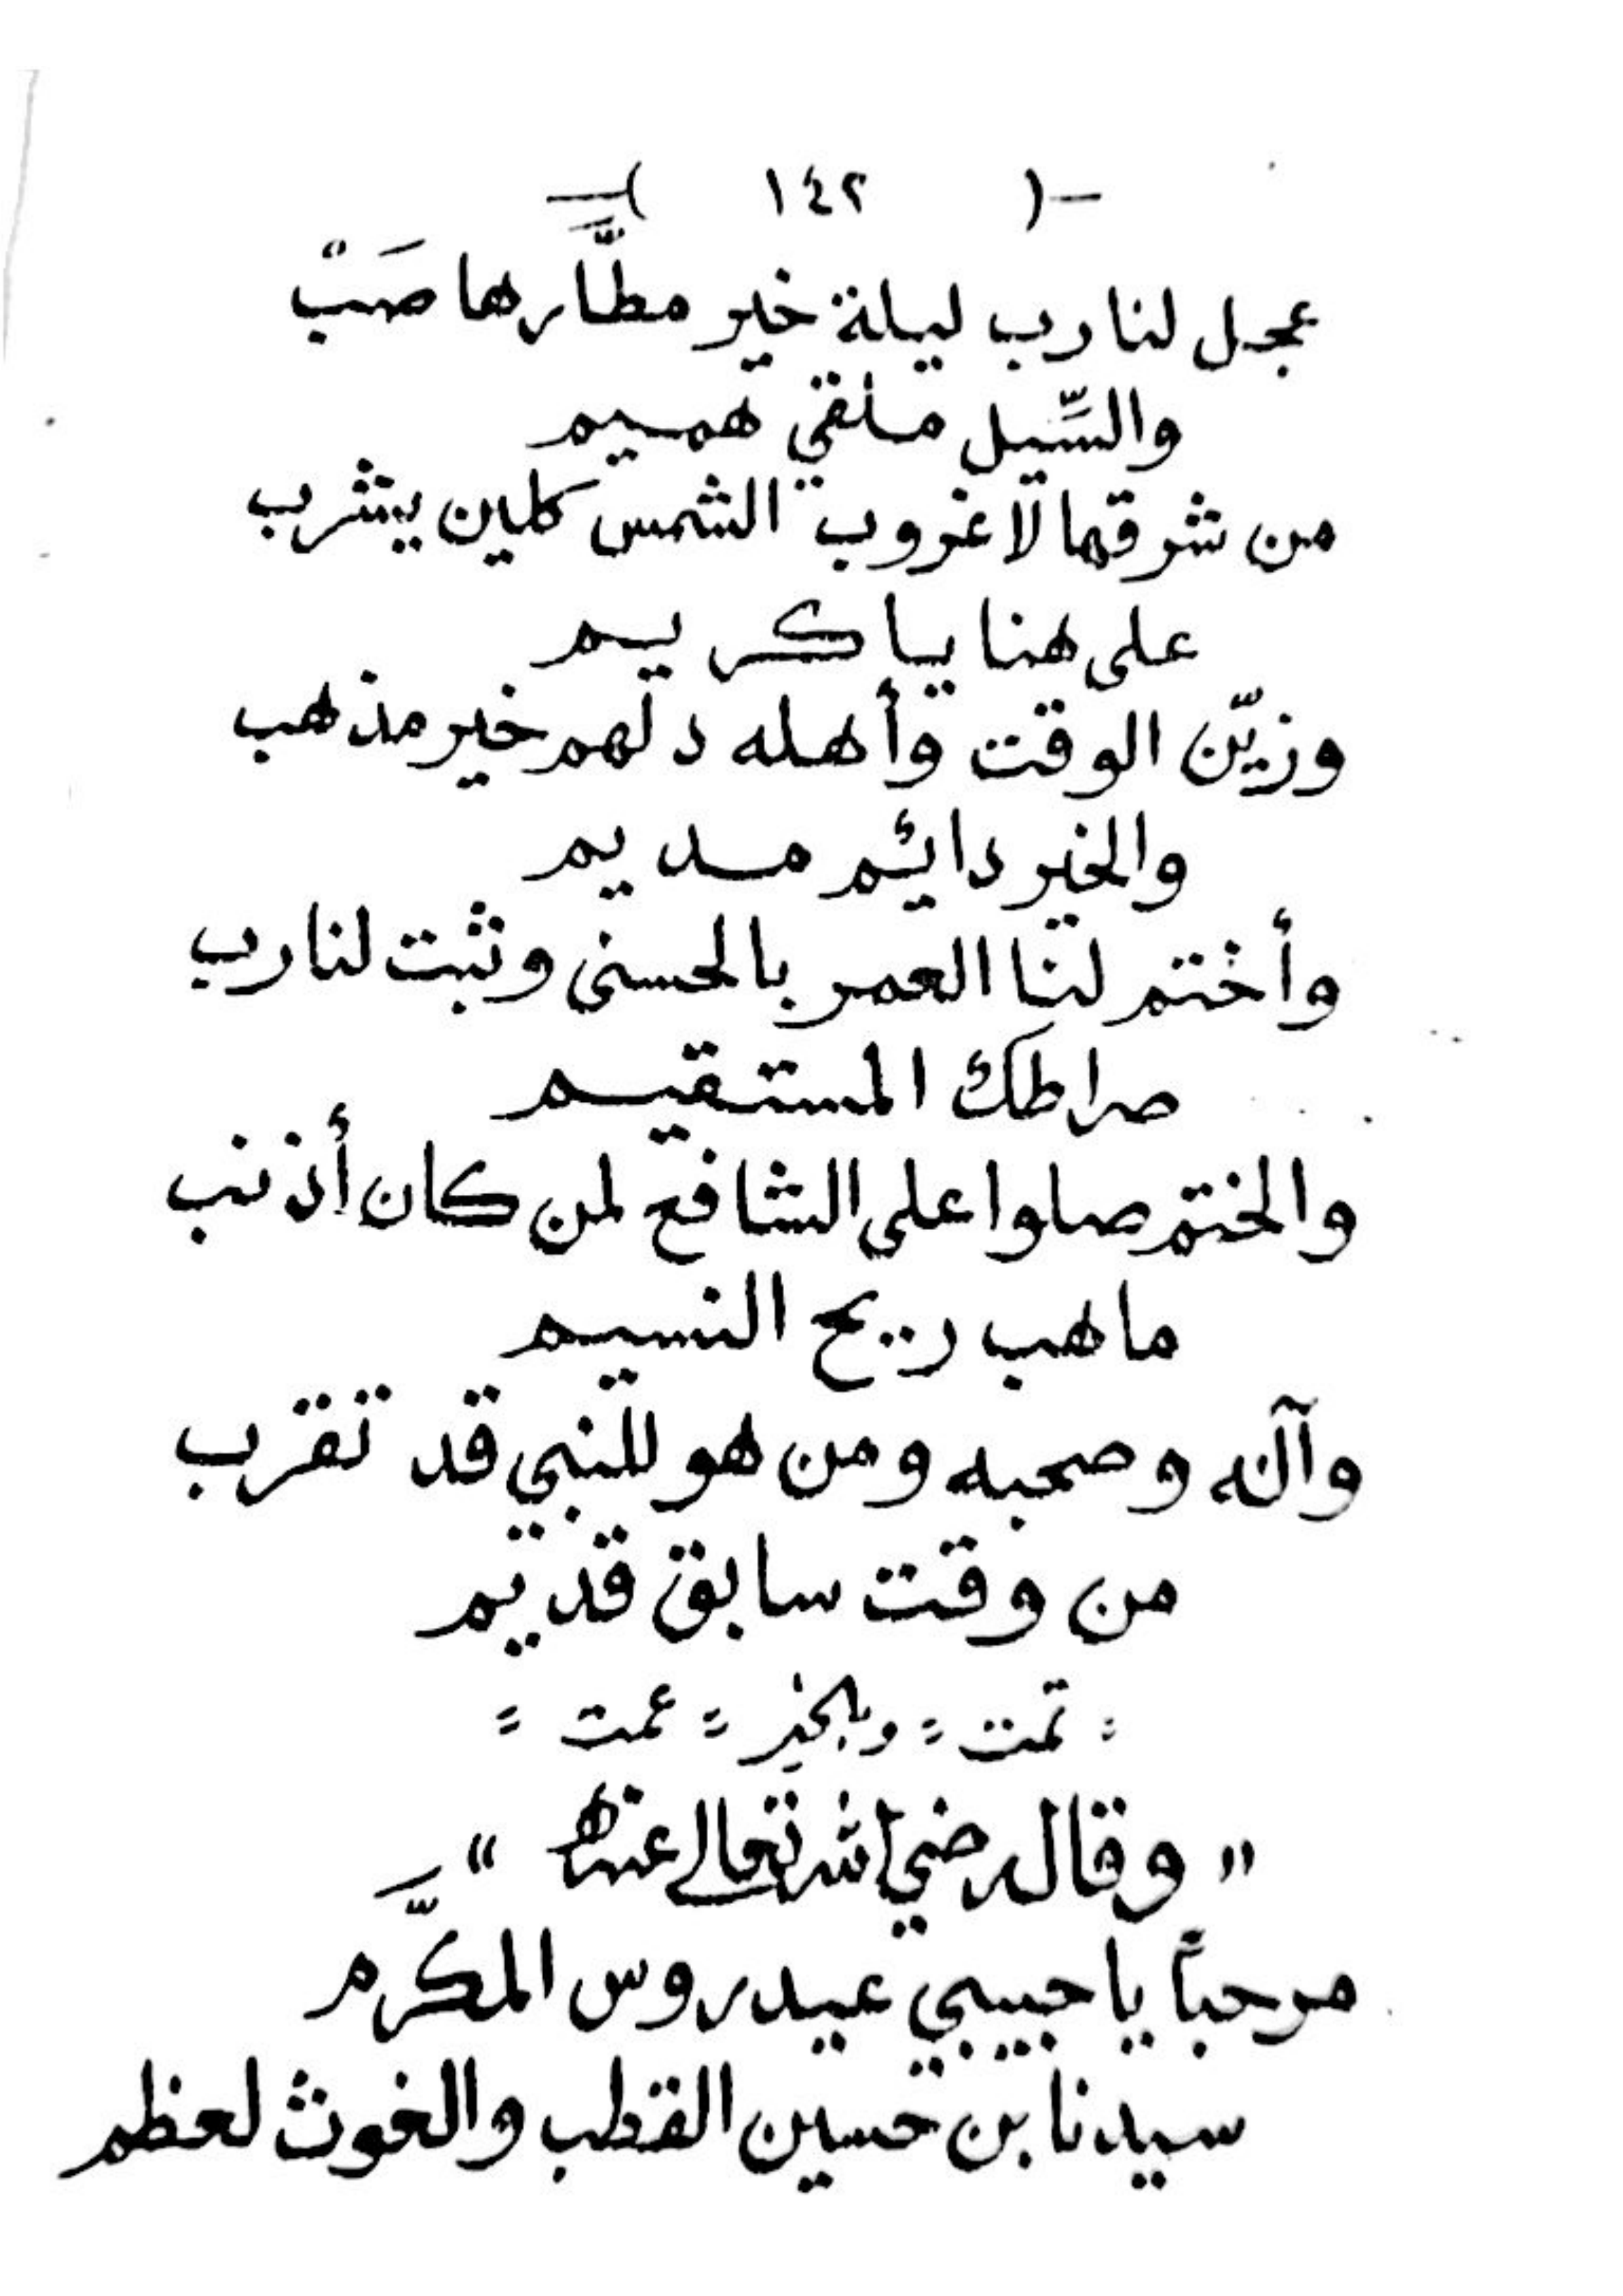 -( ١٤٢ )-
عجل لنا رب ليلة خير مطَّارها صَبّْ
والسِّيل ملقي هميم
من شرقها لا غروب الشمس كلين يشرب
على هنا يا كريم
وزيّن الوقت وأهله دلهم خير مذهب
والخير دائم مديم
وأختم لنا العمر بالحسنى وثبت لنا رب
صراطك المستقيم
والختم صلوا على الشافع لمن كان أذنب
ما هب ريح النسيم
وآله وصحبه ومن هو للنبي قد تقرب
من وقت سابق قديم
= تمت = وبالخير = عمت =
" وقال رضي الله تعالى عنه "
مرحباً يا حبيبي عيدروس المكرَّم
سيدنا بن حسين القطب والغوث لعظم